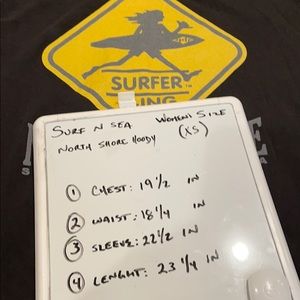 SURFER
ING
SURF N SEA WOMENS SIZE
(XS)
NORTH SHORE HOODY
① CHEST: 19 1/2 IN
② WAIST: 18 1/4 IN
③ SLEEVE: 22 1/2 IN
④ LENGHT: 23 1/4 IN